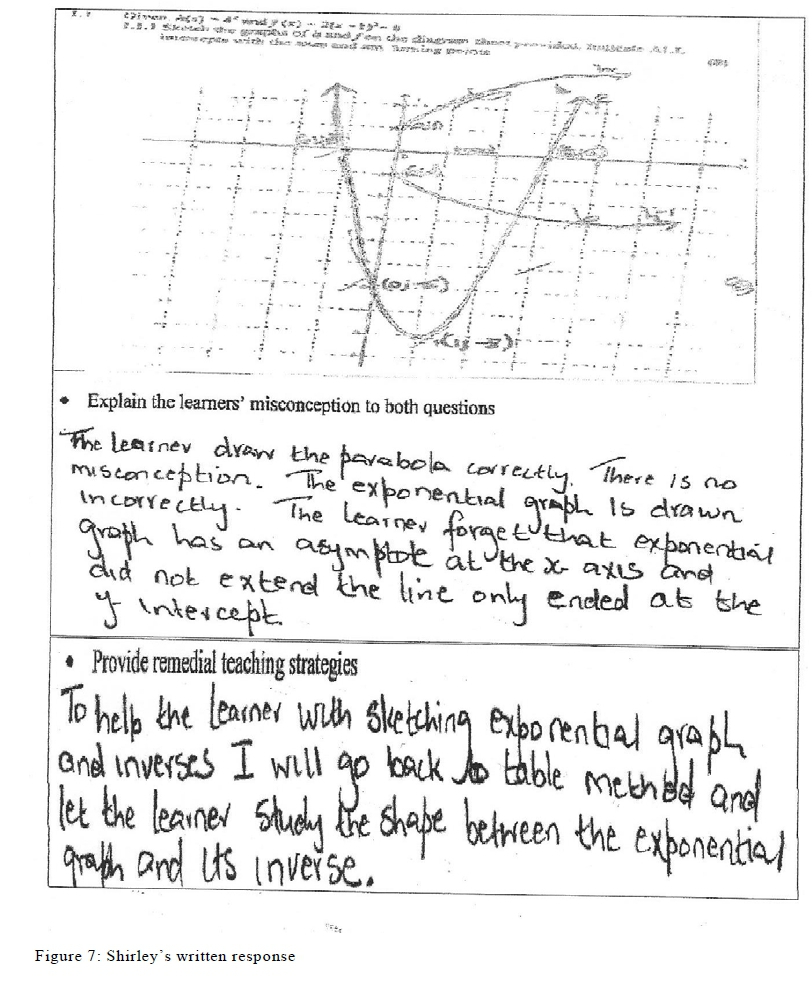 Given
and
the graphs of
and
on the diagram
intercepts with the
and
turning points
• Explain the learners' misconception to both questions
The learner draw the parabola correctly. There is no
misconception. The exponential graph is drawn
incorrectly. The learner forget that exponential
graph has an asymptote at the x- axis and
did not extend the line only ended at the
y intercept.
• Provide remedial teaching strategies
To help the learner with sketching exponential graph
and inverses I will go back to table method and
let the learner study the shape between the exponential
graph and its inverse.
Figure 7: Shirley's written response